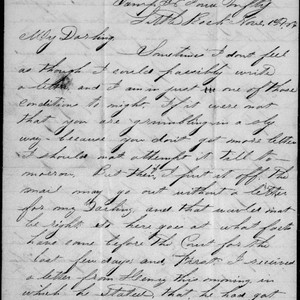 Camp 1st Iowa Infty
Little Rock Nov. 12th
My Darling
Sometimes I dont feel
as though I could possibly write
a letter and I am just in one of those
conditions to night. If it were not
that you are grumbling in a sly
way because you don't get more letters
I should not attempt it till to-
morrow. But then if I put it off this
mail may go out without a letter
for my Darling and that would not
be right so here goes
have some before the Court for the
last few days and I received a
letter from Henry this morning in
which he states that he had got